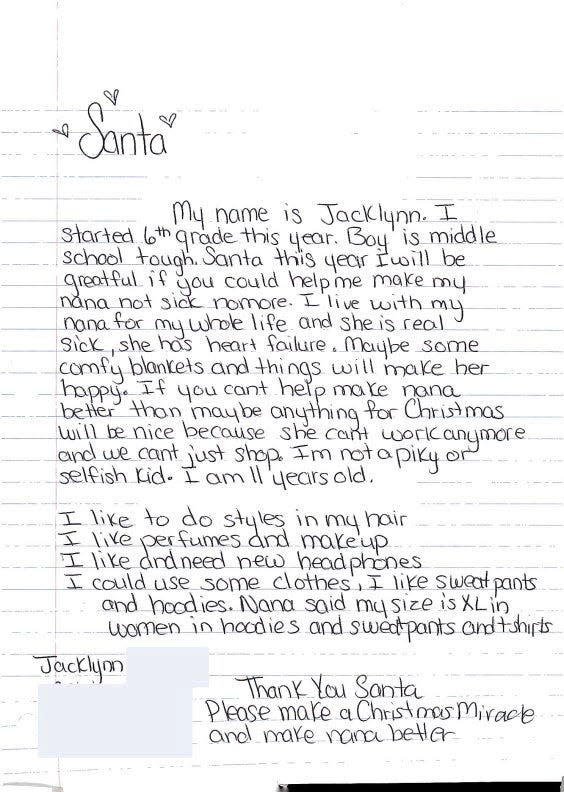 Santa
My name is Jacklynn. I
started 6th grade this year. Boy is middle
school tough. Santa this year I will be
greatful if you could help me make my
nana not sick nomore. I live with my
nana for my whole life and she is real
sick, she has heart failure. Maybe some
comfy blankets and things will make her
happy. If you cant help make nana
better than maybe anything for Christmas
will be nice because she cant work anymore
and we cant just shop. Im not a piky or
selfish kid. I am 11 years old.
I like to do styles in my hair
I like perfumes and makeup
I like and need new headphones
I could use some clothes, I like sweatpants
and hoodies. Nana said my size is XL in
women in hoodies and sweatpants and tshirts
Jacklynn
Thank You Santa
Please make a Christmas Miracle
and make nana better